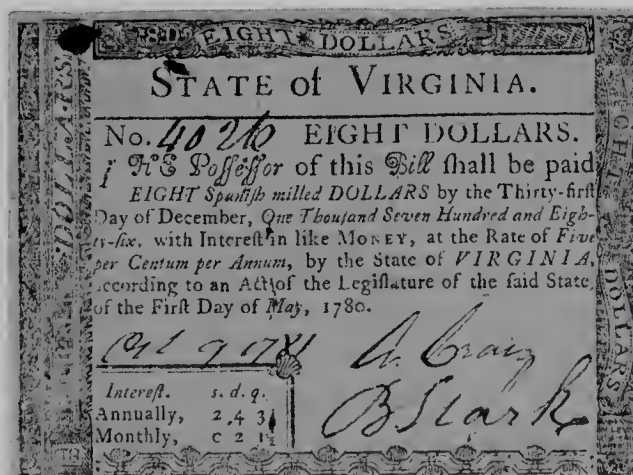 8D EIGHT DOLLARS
STATE of VIRGINIA.
No. 4026 EIGHT DOLLARS.
THE Poſſeſſor of this Bill ſhall be paid
EIGHT Spaniſh milled DOLLARS by the Thirty-firſt
Day of December, One Thouſand Seven Hundred and Eigh-
ty-ſix, with Intereſt in like MONEY, at the Rate of Five
per Centum per Annum, by the State of VIRGINIA,
according to an Act of the Legiſlature of the ſaid State,
of the Firſt Day of May, 1780.
1781
Craig
B Stark
Intereſt. s. d. q.
Annually, 2 4 3
Monthly, 0 2 1½
DOLLARS
EIGHT DOLLARS